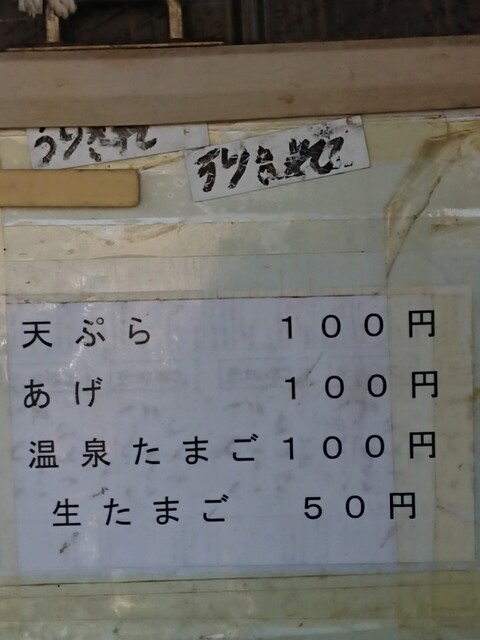 うりきれ
うりきれ
天ぷら 100円
あげ 100円
温泉たまご 100円
生たまご 50円